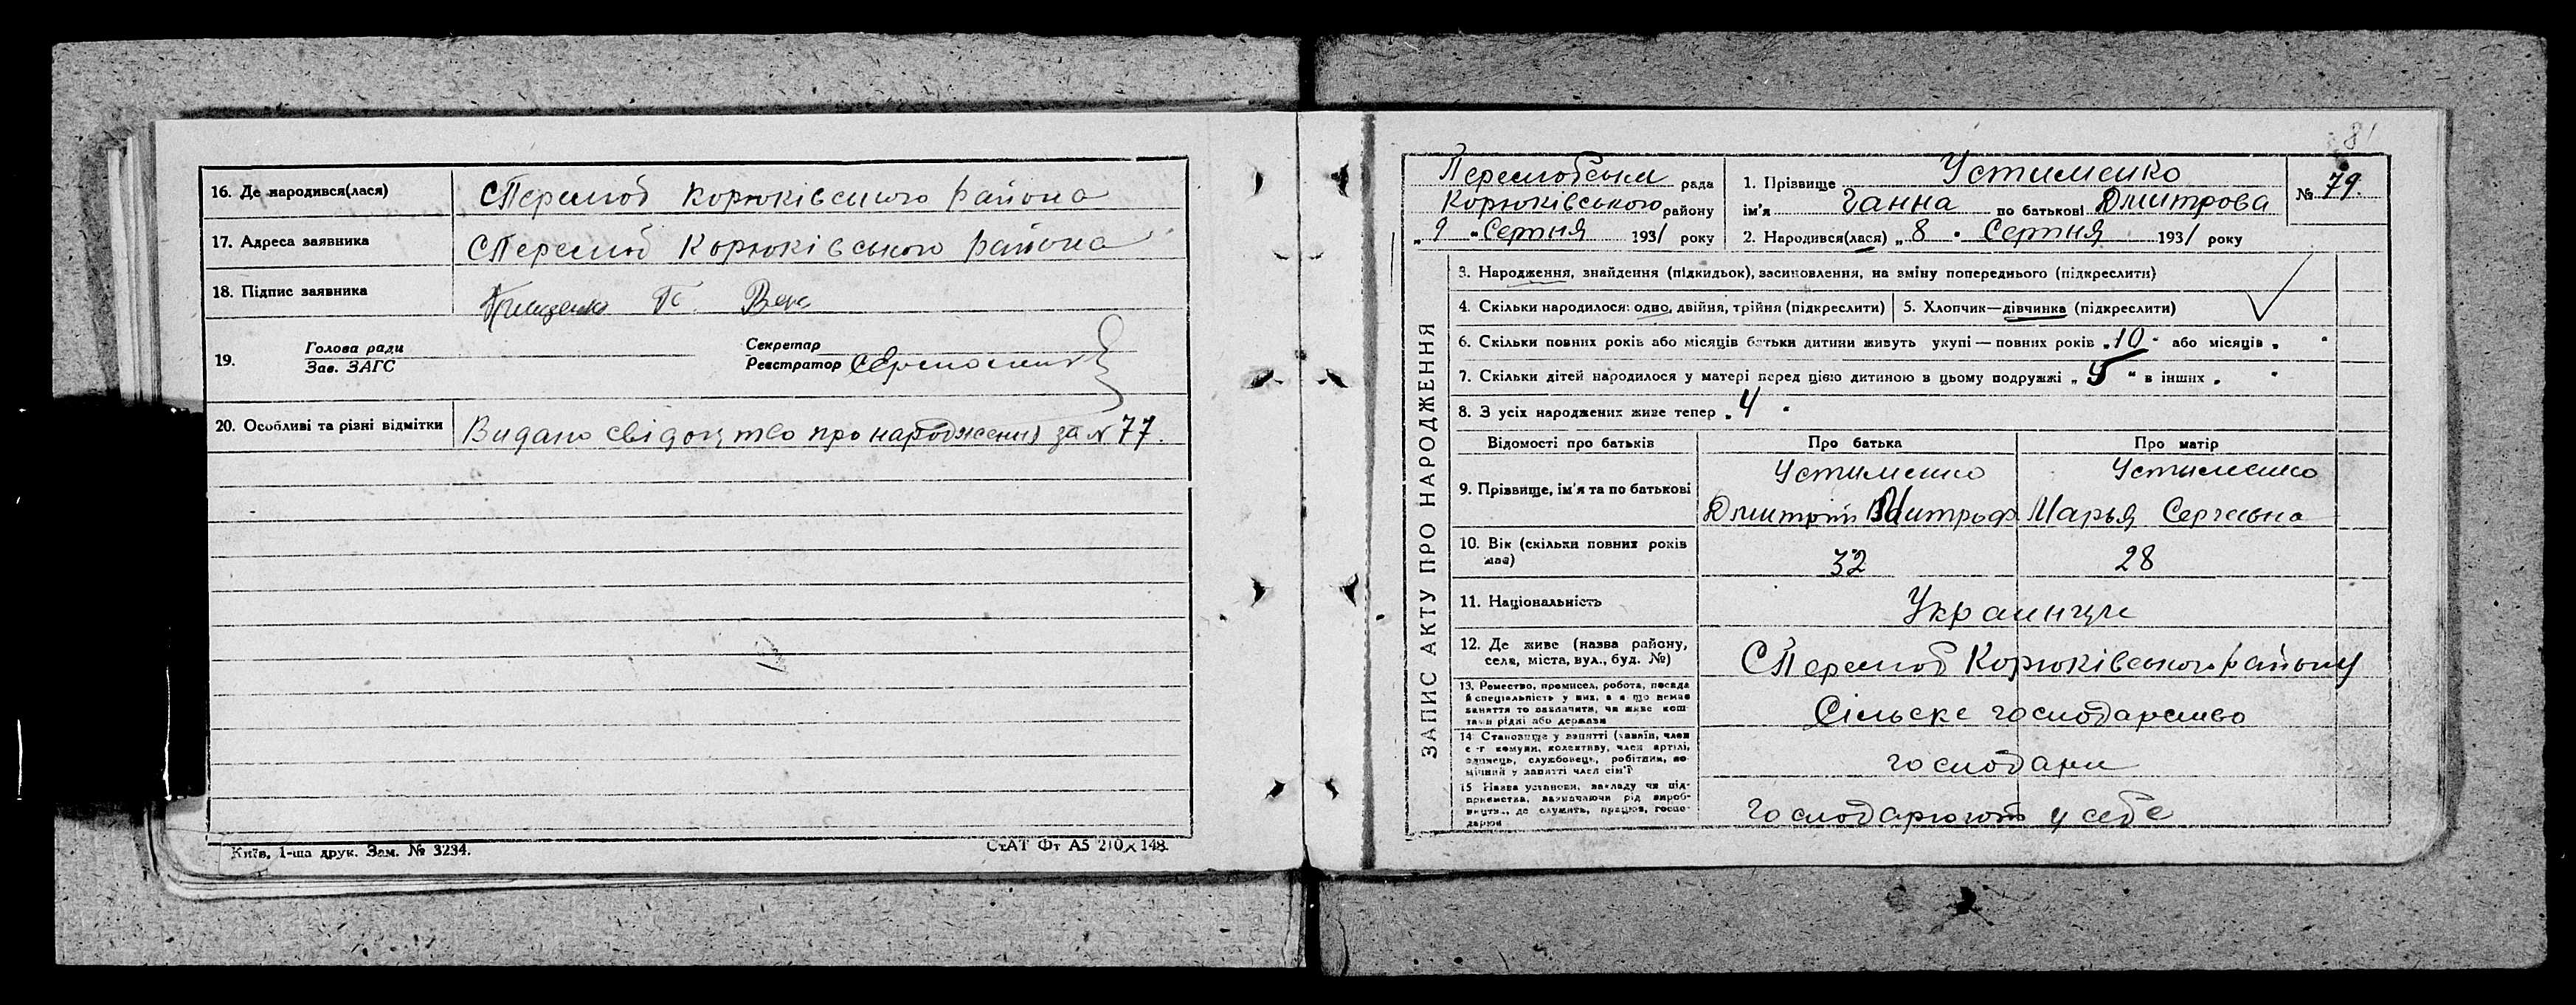 16. Де народився(лася)
С Перелюб Корюківського района
17. Адреса заявника
С Перелюб Корюківського района
18. Підпис заявника
19.
Голова ради
Зав. ЗАГС
Секретар
Реєстратор
20. Особливі та різні відмітки
Видано свідоцтво про народження за № 77.
Київ, 1-ша друк. Зам. № 3234.
СтАТ Фт А5 210×148.
81
Перелюбська рада
Корюківського району
„9 " Серпня 1931 року
1. Прізвище Устименко
ім'я Ганна по батькові Дмитрова
2. Народився(лася) „8 " Серпня 1931 року
№ 79.
ЗАПИС АКТУ ПРО НАРОДЖЕННЯ
3. Народження, знайдення (підкидьок), засиновлення, на зміну попереднього (підкреслити)
4. Скільки народилося: одно, двійня, трійня (підкреслити)
5. Хлопчик—дівчинка (підкреслити)
6. Скільки повних років або місяців батьки дитини живуть укупі — повних років „10 " або місяців „ "
7. Скільки дітей народилося у матері перед цією дитиною в цьому подружжі „ " в інших „ "
8. З усіх народжених живе тепер „4 "
Відомості про батьків
Про батька
Про матір
9. Прізвище, ім'я та по батькові
Устименко
Дмитрій Митроф
Устименко
Марья Сергеевна
10. Вік (скільки повних років має)
32
28
11. Національність
Украинци
12. Де живе (назва району,
села, міста, вул., буд. №)
С Перелюб Корюківського району
13. Ремество, промисел, робота, посада
й спеціяльність у них, а якщо немає
заняття то зазначити, чи живе кош-
тами рідні або держави
Сільске господарство
14. Становище у занятті (хазяїн, член
с-г комуни, колективу, член артілі,
одинець, службовець, робітник, по-
мічний у занятті член сім'ї
господари
15 Назва установи, закладу чи під-
приємства, зазначаючи рід вироб-
ництв., де служить, працює, госпо-
дарює
господарюют у себе